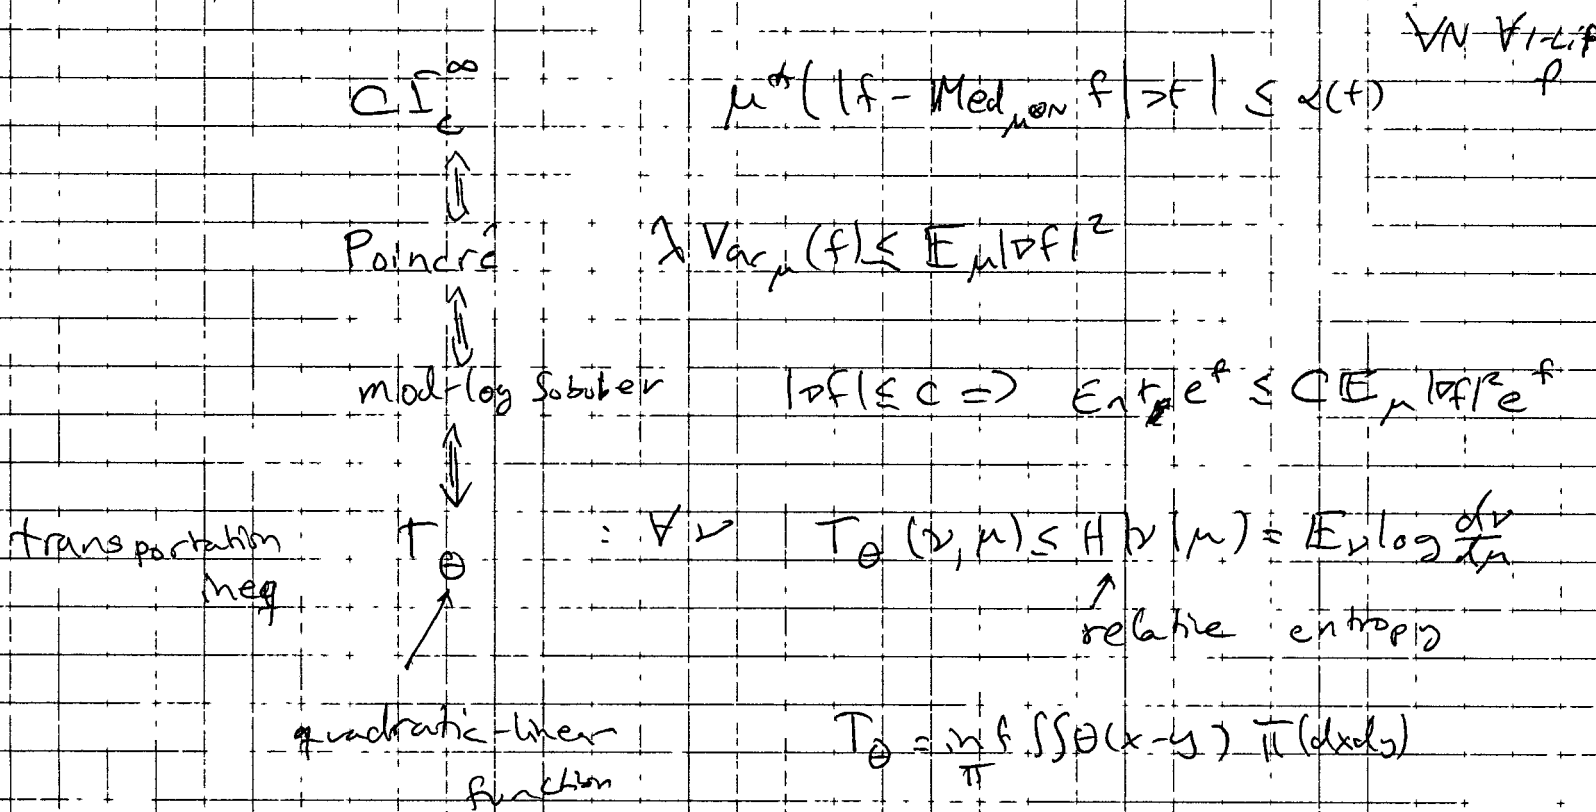 ∀N ∀ 1-Lip f
CI_c^∞ μ^*( |f - Med_{μ^{⊗N}} f| > t | ≤ α(t)
⇕
Poincré λ Var_μ (f) ≤ E_μ|∇f|^2
⇕
mod-log Sobolev |∇f| ≤ c => Ent_μ e^f ≤ C E_μ |∇f|^2 e^f
⇕
transportation T_θ : ∀ν T_θ (ν, μ) ≤ H(ν|μ) = E_ν log dν/dμ
ineq ↑
relative entropy
quadratic-linear T_θ = inf_π ∫∫ θ(x-y) π(dxdy)
function